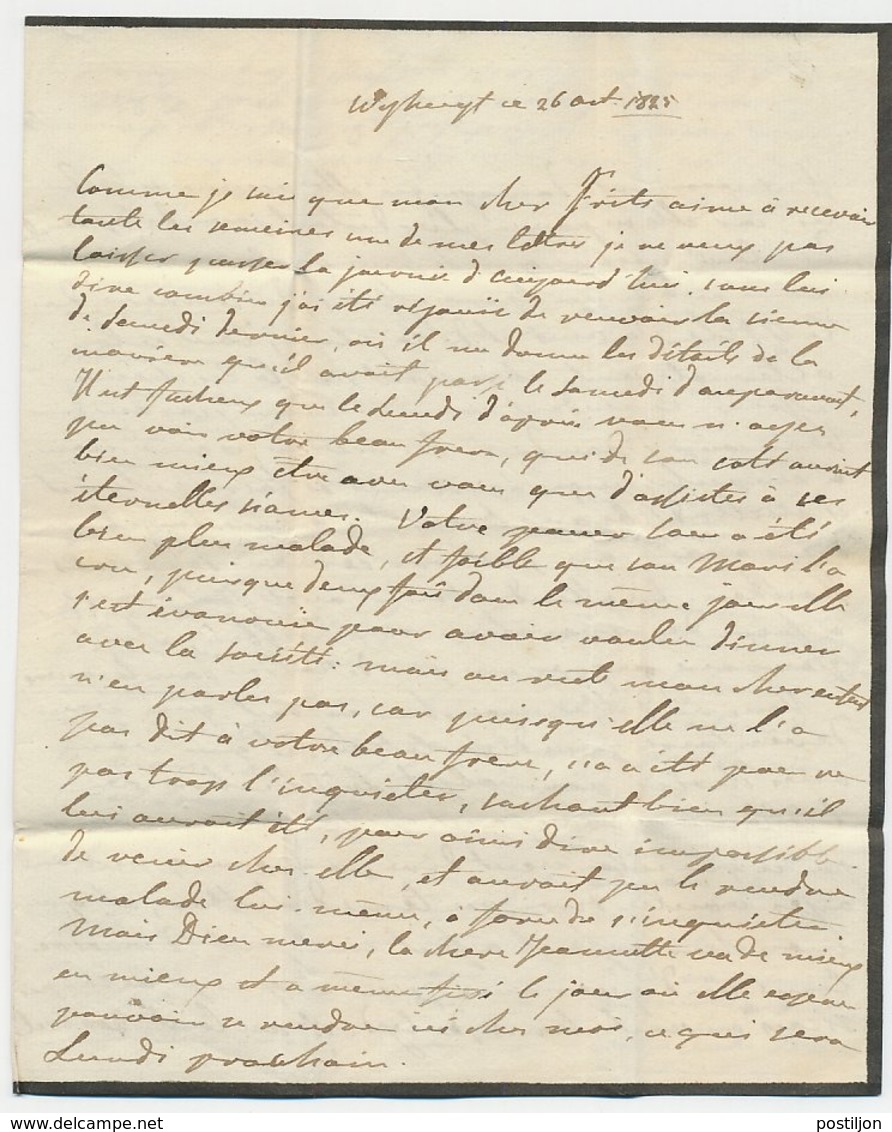 Wyhenyt ce 26 oct 1825
Comme je sais que mon cher Frits aime à recevoir
toute les semeines une de mes lettres je ne veux pas
laisser passer la journée d'aujourd'hui, sans lui
dire combien j'ai été réjouïe de recevoir la sienne
de Samedi dernier, où il me donne les détails de la
manière qu'il avait passé le Samedi d'auparavant,
Il est facheux que le Lundi d'après vous n'ayez
pu voir votre beau frere, qui de son coté auroit
bien mieux être avec vous que d'assister à ses
éternelles séances. Votre pauvre soeur a été
bien plus malade, et foible que son Mari l'a
cru, puisque deux fois dans le même jour elle
s'est évanouïe pour avoir voulu dinner
avec la société: mais au reste mon cher enfant
n'en parlez pas, car puisqu'elle ne l'a
pas dit à votre beau frere, ç'a été pour ne
pas trop l'inquieter, sachant bien qu'il
lui auroit été, pour ainsi dire impossible
de venir chez elle, et auroit pu le rendre
malade lui-même, à force de s'inquieter
Mais Dieu merci, la chere Jeannette va de mieux
en mieux et a même fixé le jour où elle espere
pouvoir se rendre ici chez moi, ce qui sera
Lundi prochain.
postiljon